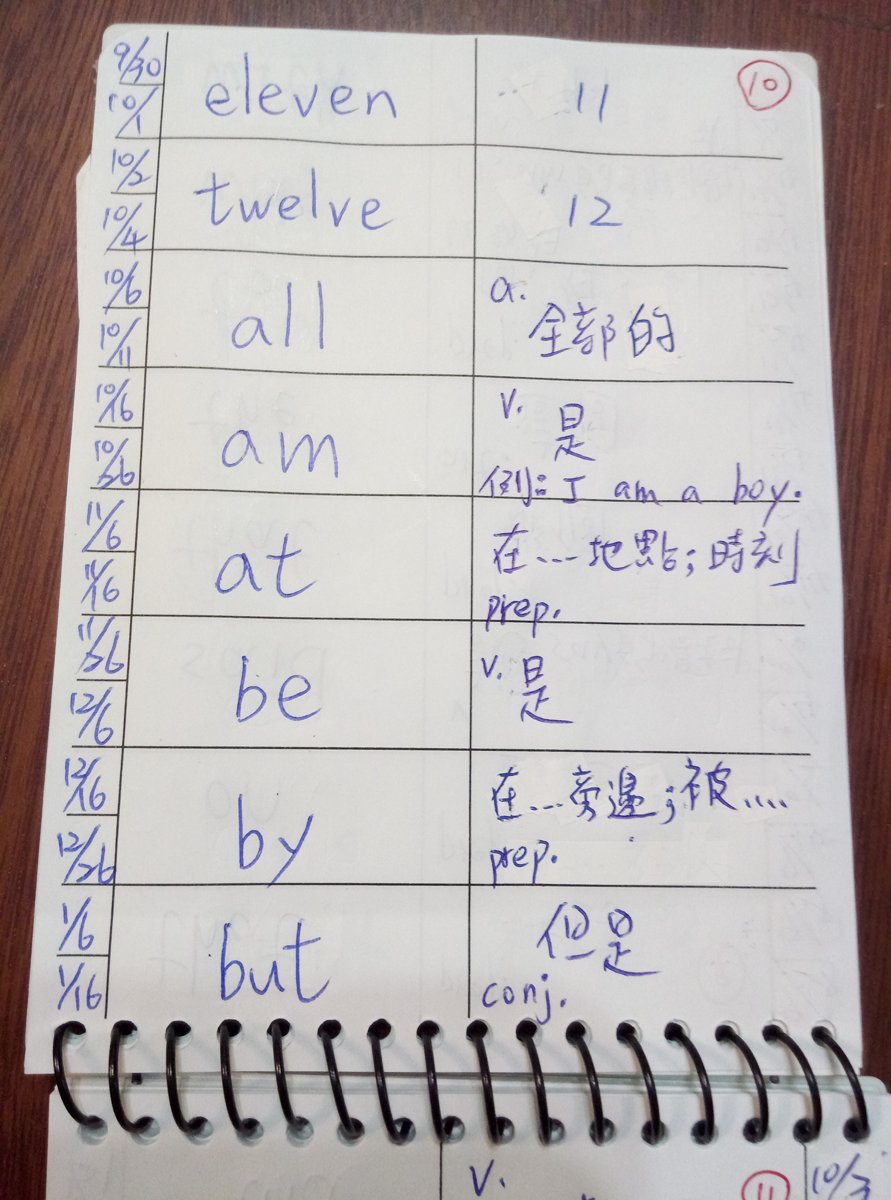 9/30
eleven
11
10
10/1
10/2
twelve
12
10/4
10/6
all
a.
全部的
10/11
10/16
am
v.
是
10/26
例: I am a boy.
11/6
at
在...地點;時刻
11/16
prep.
11/26
be
v. 是
12/6
12/16
by
在...旁邊;被....
12/26
prep.
1/6
but
但是
1/16
conj.
v.
11
10/3